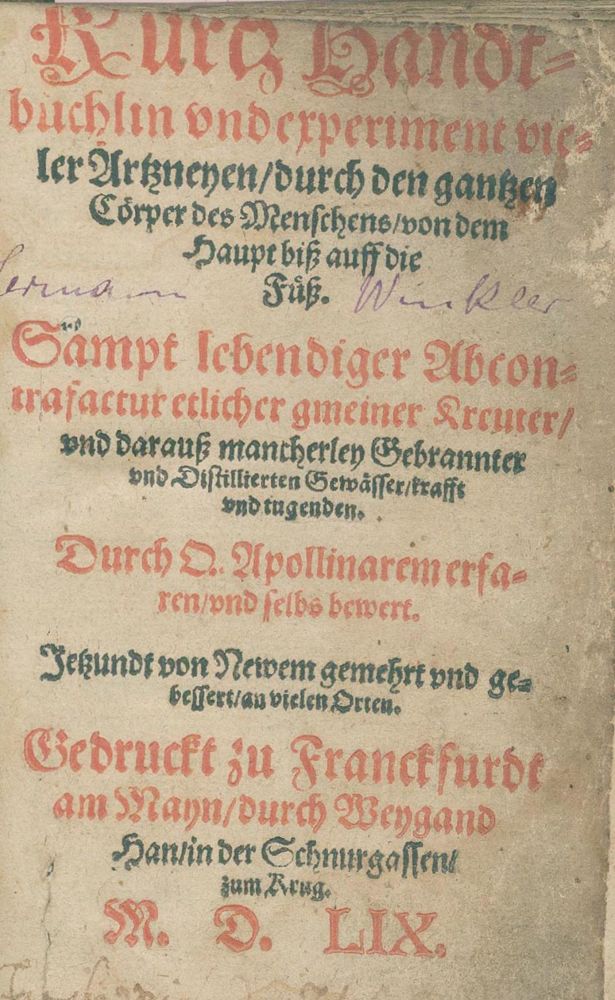 Kurtz Handt-
büchlin vnd experiment vie-
ler Artzneyen/durch den gantzen
Cörper des Menschens/von dem
Haupt biß auff die
Füß.
Hermann Winkler
Sampt lebendiger Abcon-
trafactur etlicher gmeiner Kreuter/
vnd darauß mancherley Gebrannter
vnd Distillierten Gewässer/krafft
vnd tugenden.
Durch Q. Apollinarem erfa-
ren/vnd selbs bewert.
Jetzundt von Newem gemehrt vnd ge-
bessert/an vielen Orten.
Gedruckt zu Franckfurdt
am Mayn/durch Weygand
Han/in der Schnurgassen/
zum Krug.
M. D. LIX.